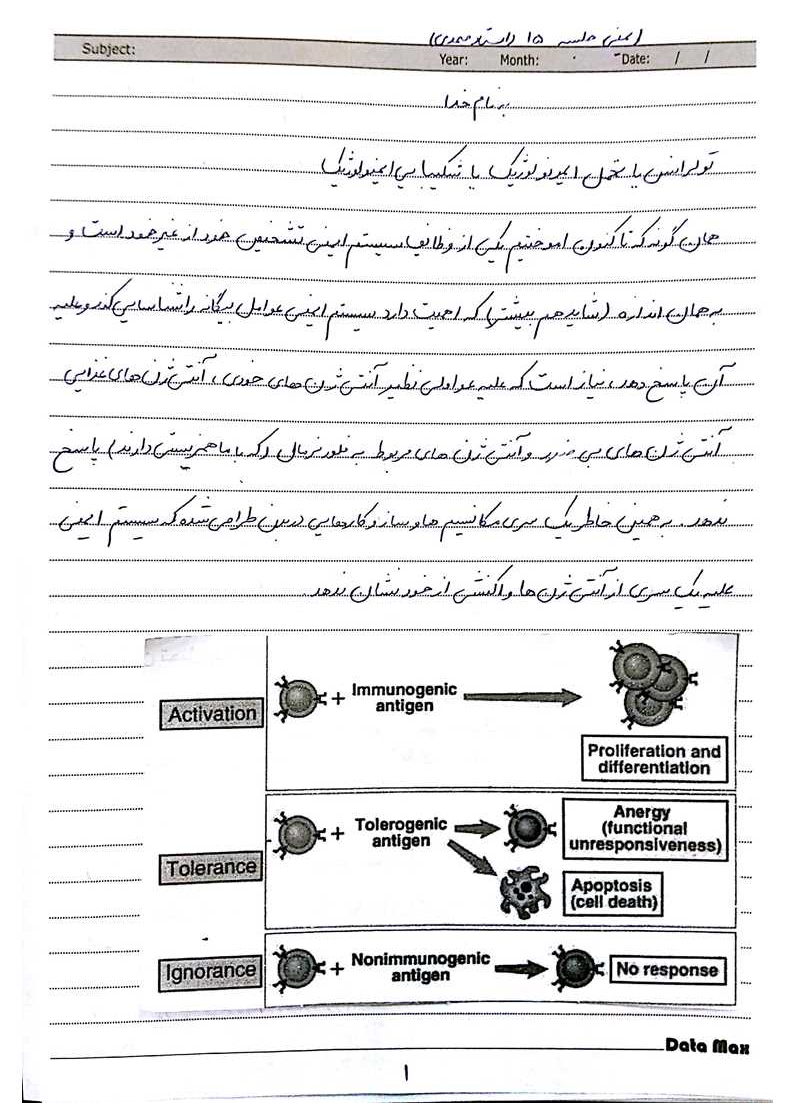 (ایمنی جلسه ۱۵ (استاد محمدی
Subject:
Year: Month: Date: / /
به نام خدا
تولرانس یا تحمل ایمونولوژیک یا شکیبایی ایمنولوژیک
همان گونه که تاکنون اموختیم یکی از وظایف سیستم ایمنی تشخیص خود از غیر خود است و
به همان اندازه (شاید هم بیشتر) که اهمیت دارد سیستم ایمنی عوامل بیگانه را شناسایی کند و علیه
آن پاسخ دهد، نیاز است که علیه عواملی نظیر آنتی ژن های خودی، آنتی ژن های غذایی
آنتی ژن های بی ضرر و آنتی ژن های مربوط به فلور نرمال (که با ما همزیستی دارند) پاسخ
ندهد. به همین خاطر یک سری مکانیسم ها و ساز و کارهایی در بدن طراحی شده که سیستم ایمنی
علیه یک سری از آنتی ژن ها واکنشی از خود نشان ندهد.
Activation
+ Immunogenic
antigen
Proliferation and
differentiation
Tolerance
+ Tolerogenic
antigen
Anergy
(functional
unresponsiveness)
Apoptosis
(cell death)
Ignorance
+ Nonimmunogenic
antigen
No response
Data Max
۱